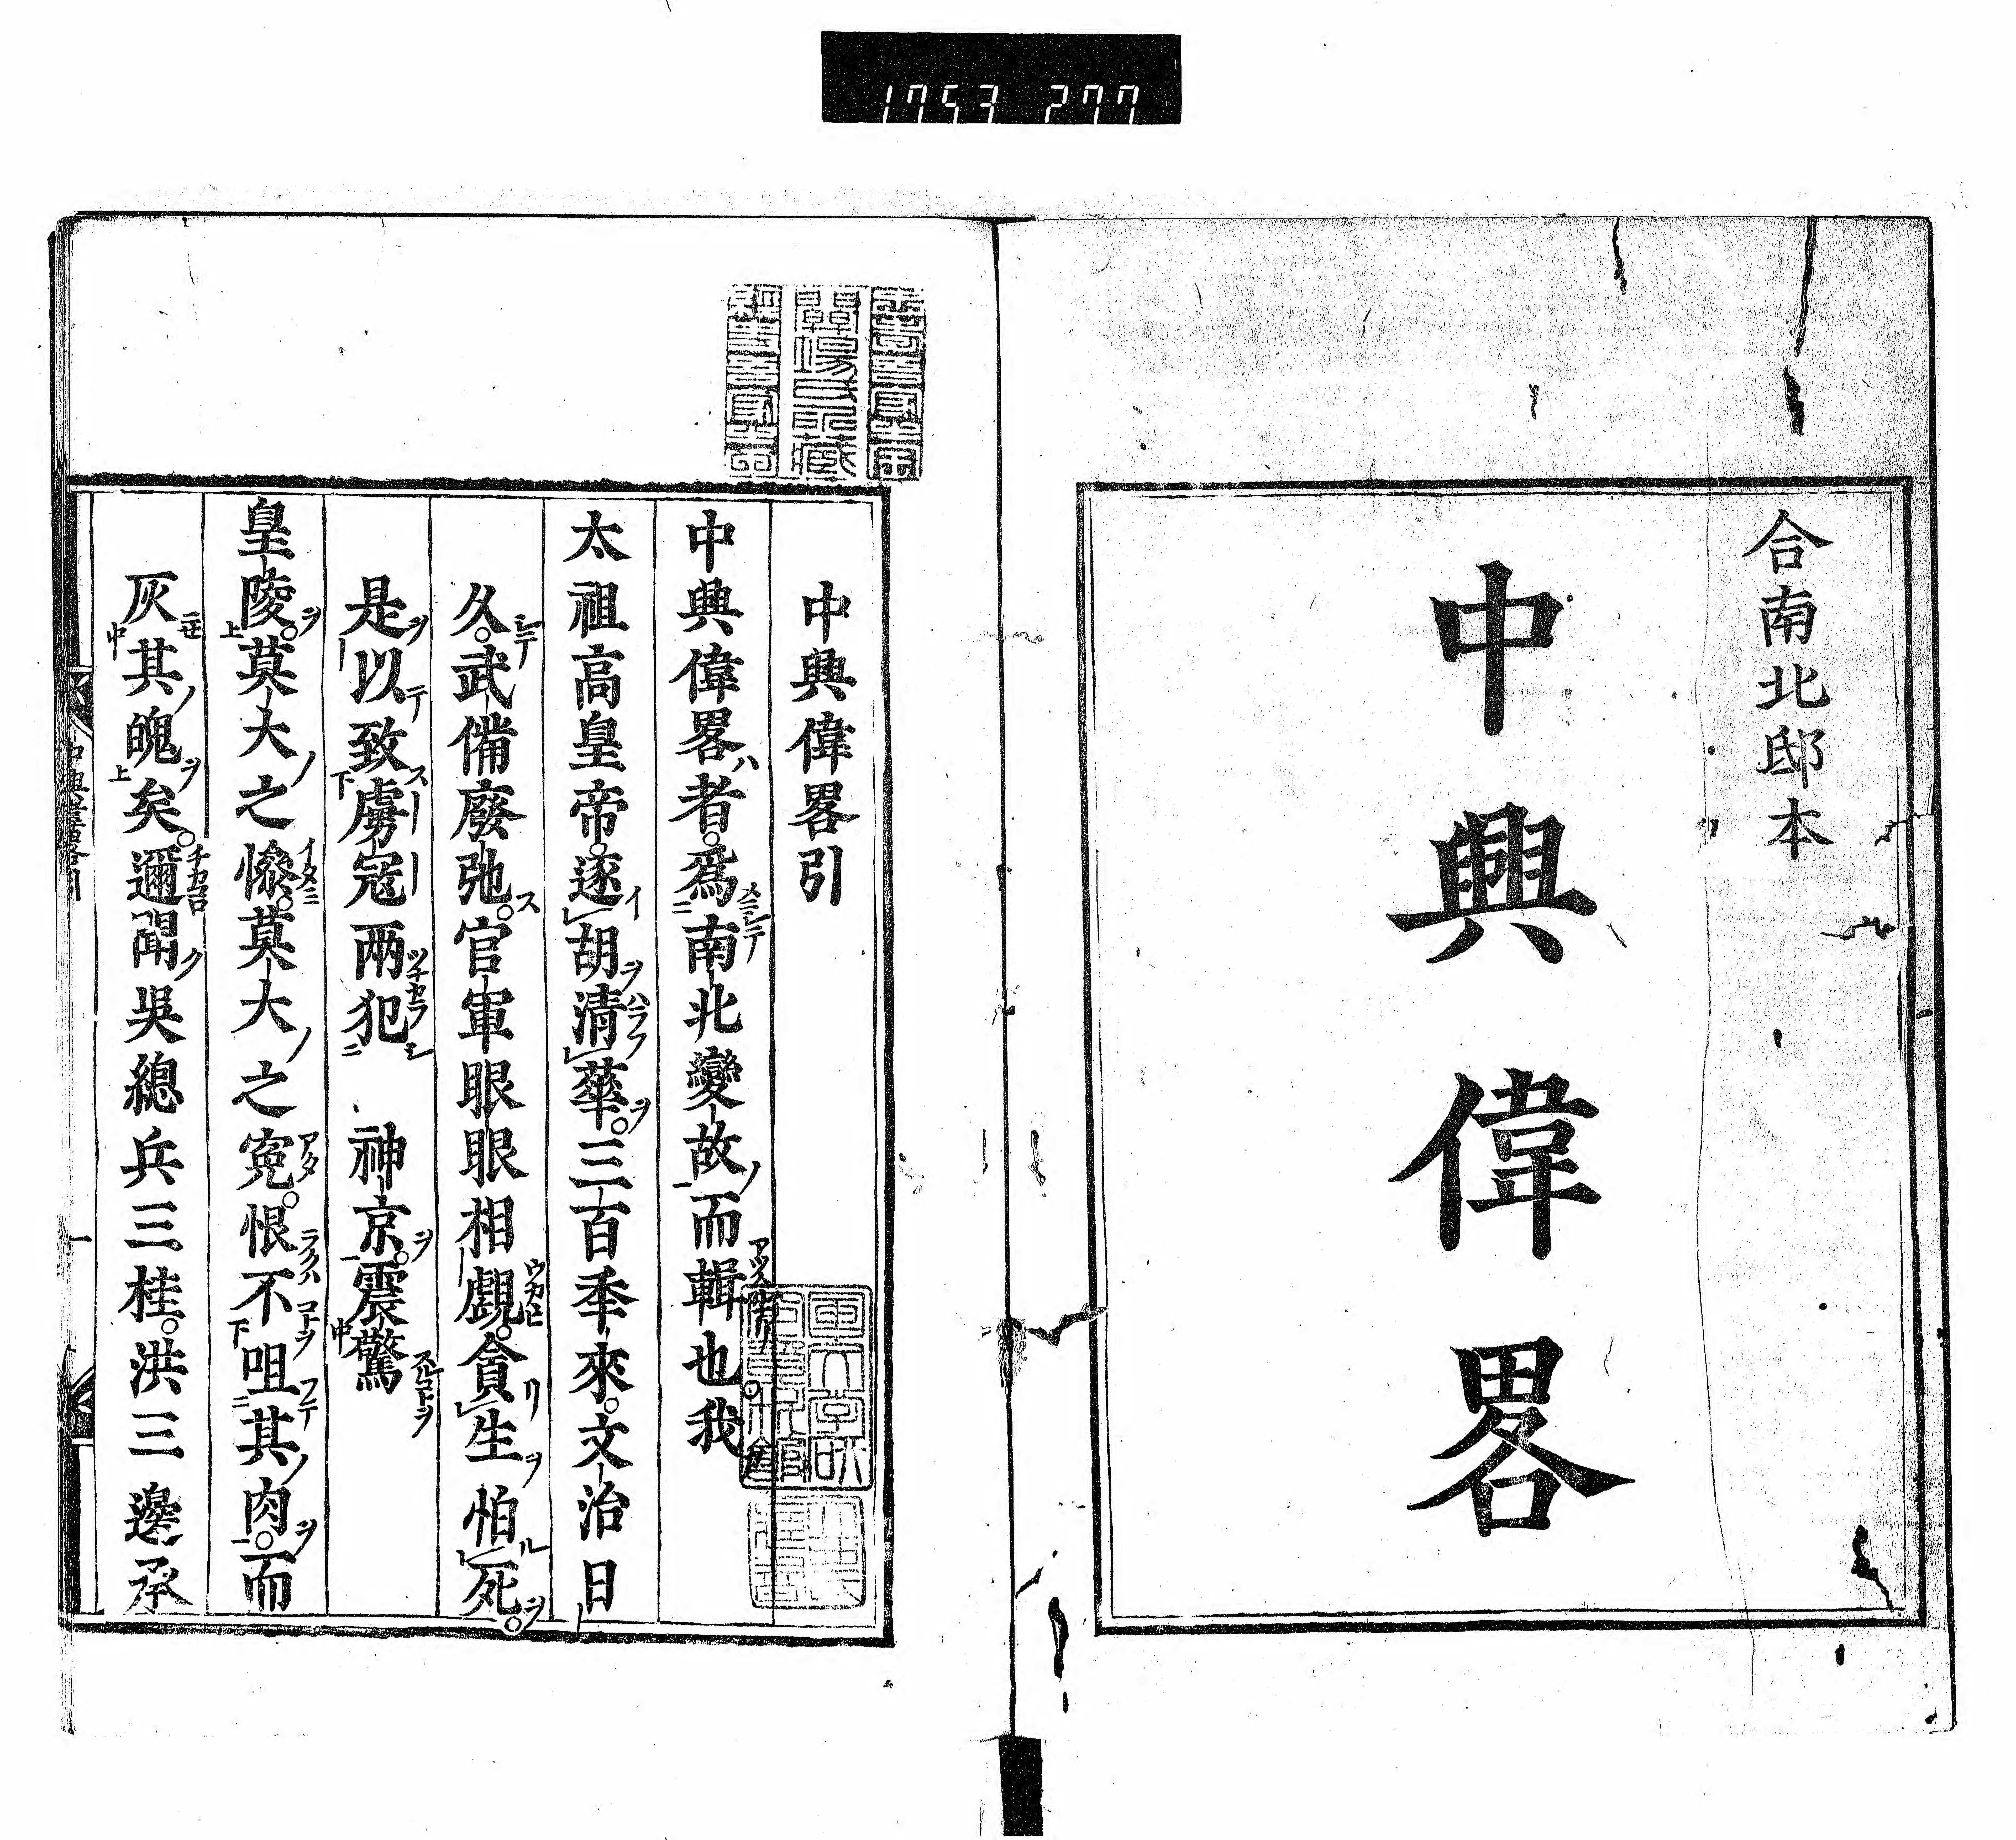 1753 277
合南北邸本
中興偉畧
中興偉畧引
中興偉畧者。爲南北變故而輯也我
太祖高皇帝。逐胡清華。三百季來。文治日
久。武備廢弛。官軍眼眼相覷。貪生怕死。
是以致虜寇兩犯 神京。震驚
皇陵。莫大之慘。莫大之寃。恨不咀其肉。而
灰其魄矣。邇聞吳總兵三桂。洪三邊承
中興偉畧引
一
關場氏所藏